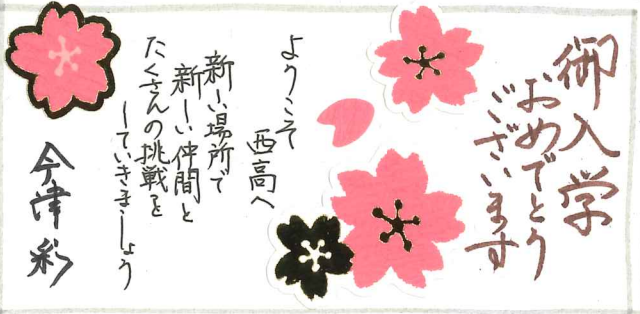 御入学
おめでとう
ございます
ようこそ
西高へ
新しい場所で
新しい仲間と
たくさんの挑戦を
していきましょう
今津彩